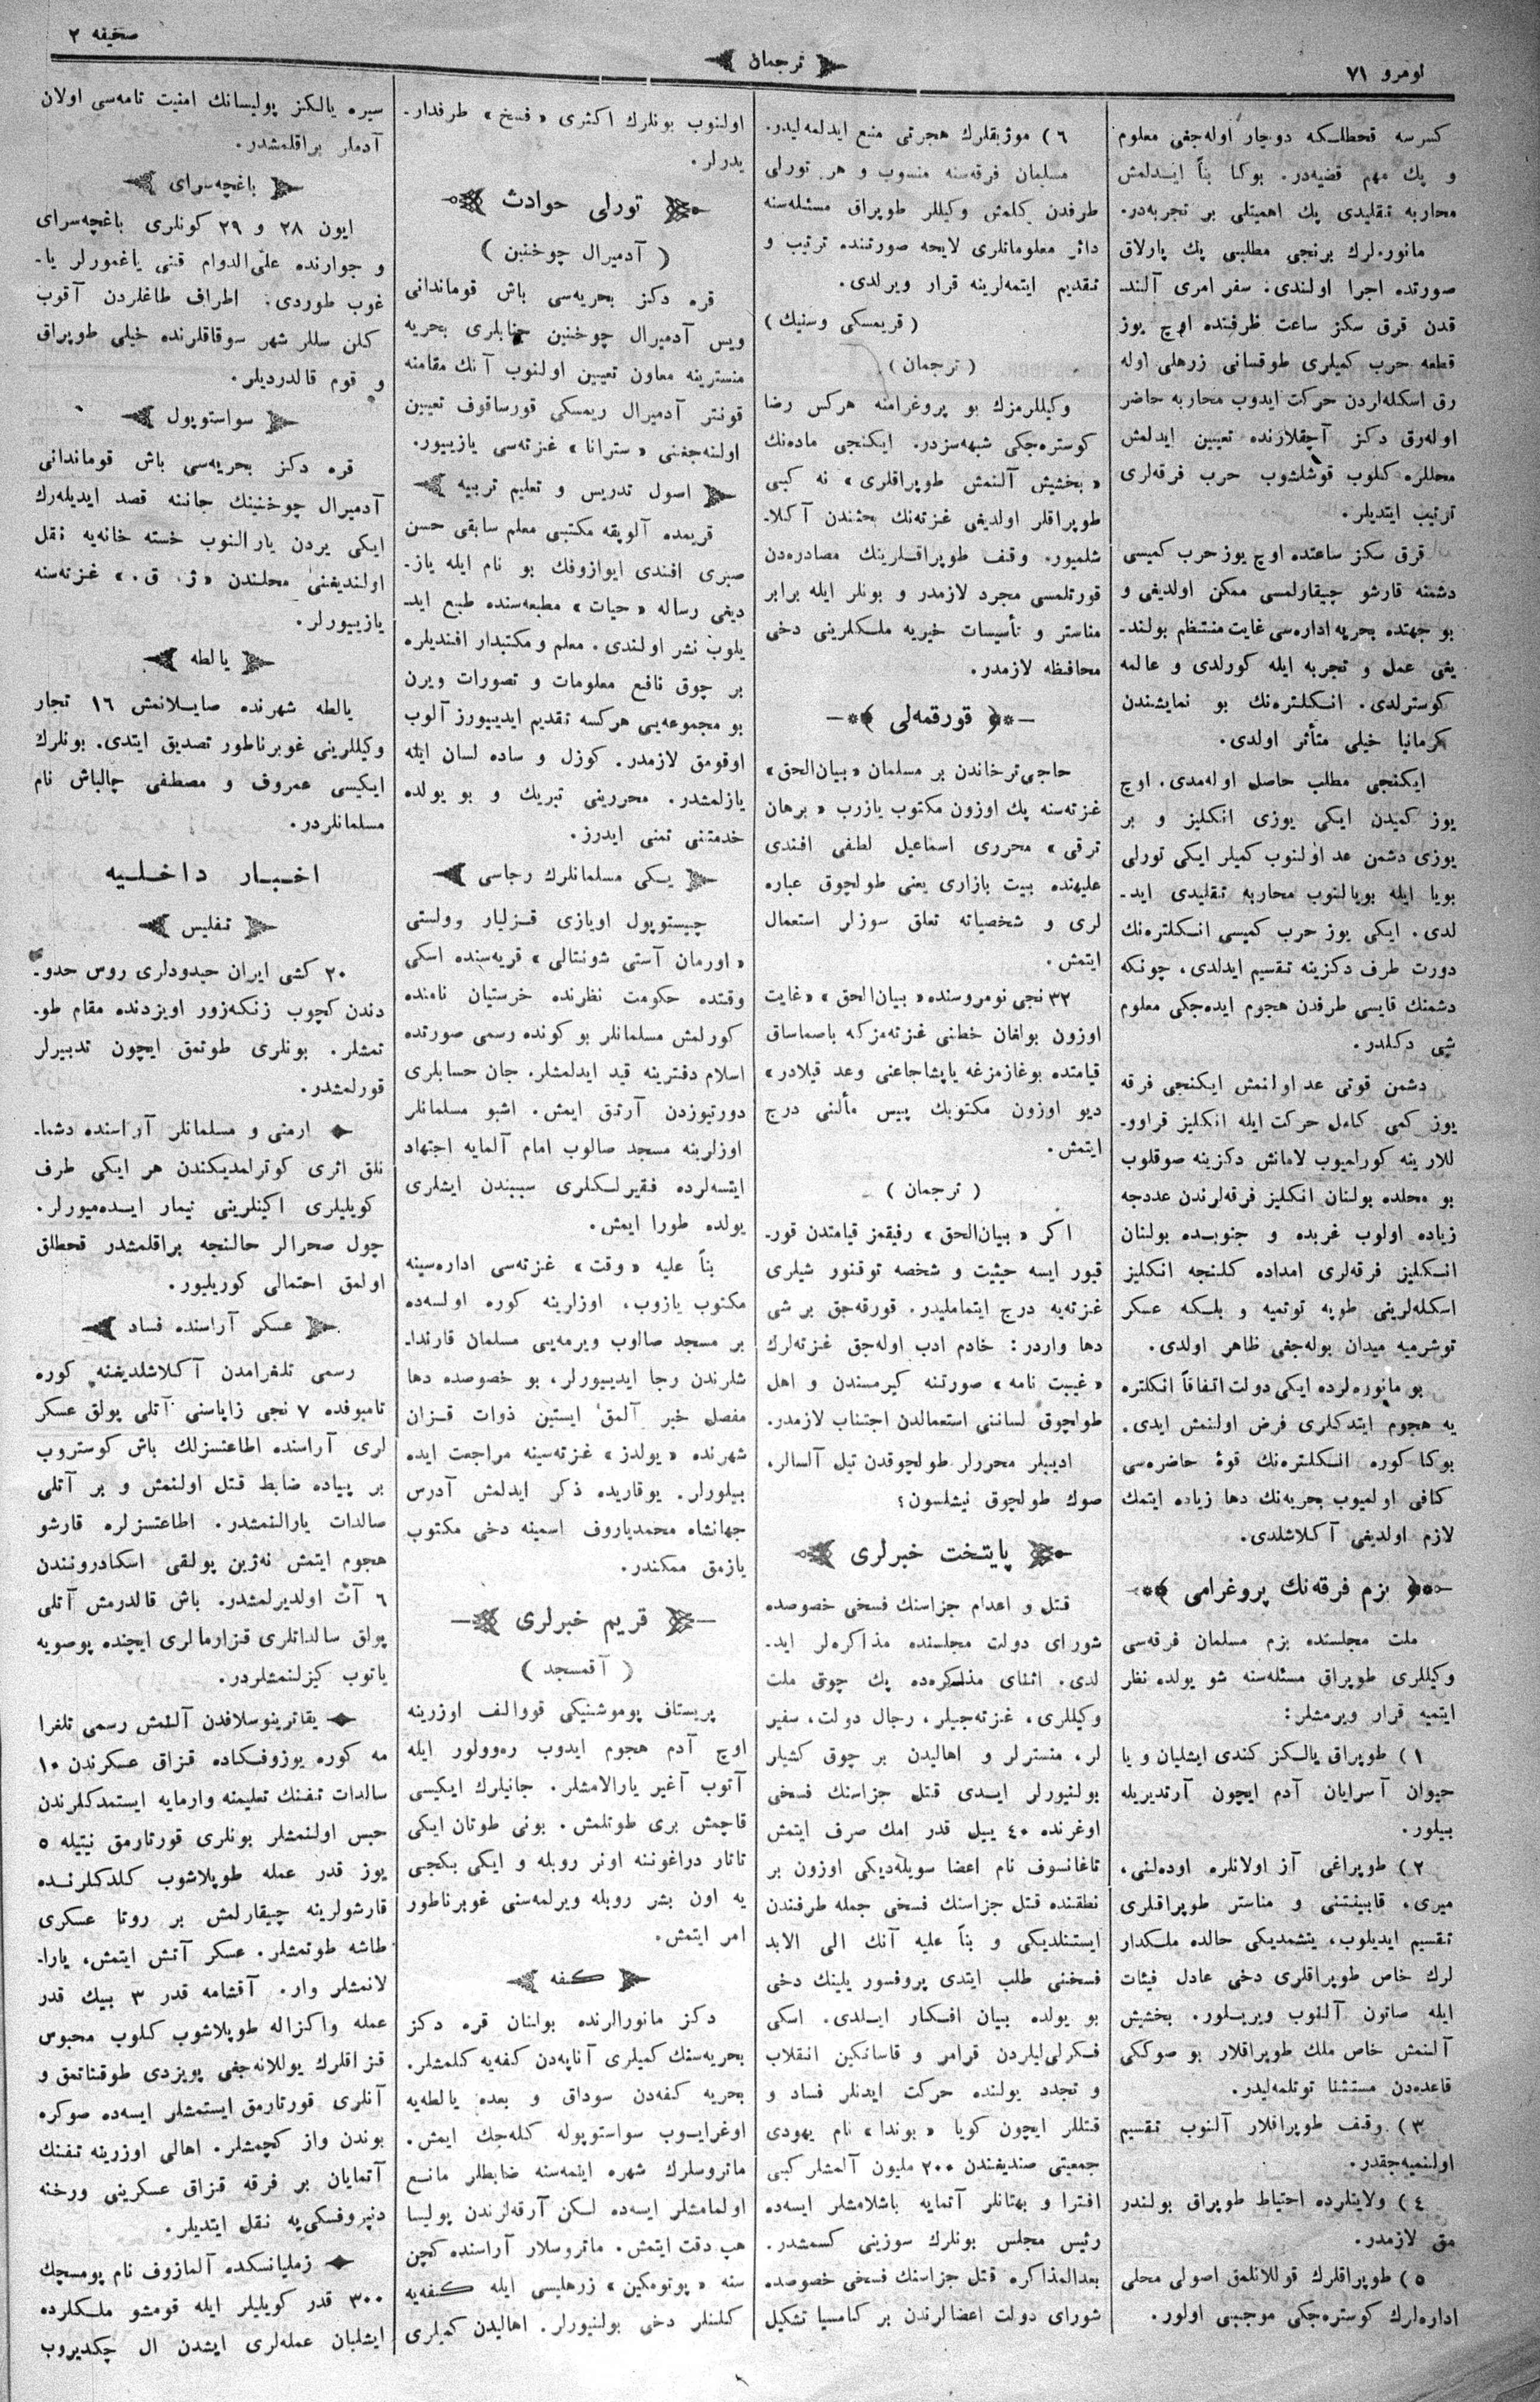 نومرو ٧١
ترجمان
صحيفه ٢
كسرسه قحطلكه دوچار اوله‌جغى معلوم
و پك مهم قضيه‌در. بوكا بناً ايدلمش
محاربه تقليدى پك اهميتلى بر تجربه‌در.
مانوره‌لرك برنجى مطلبى پك پارلاق
صورتده اجرا اولندى؛ سفر امرى آلند-
قدن قرق سكز ساعت ظرفنده اوچ يوز
قطعه حرب كميلرى طوقسانى زرهلى اوله
رق اسكله‌لردن حركت ايدوب محاربه حاضر
اوله‌رق دكز آچقلارنده تعيين ايدلمش
محللره كلوب قوشلشوب حرب فرقه‌لرى
ترتيب ايتديلر.
قرق سكز ساعتده اوچ يوز حرب كميسى
دشمنه قارشو چيقارلمسى ممكن اولديغى و
بو جهتده بحريه اداره‌سى غايت منتظم بولند-
يغى عمل و تجربه ايله كورلدى و عالمه
كوسترلدى. انكلتره‌نك بو نمايشندن
كرمانيا خيلى متأثر اولدى.
ايكنجى مطلب حاصل اوله‌مدى. اوچ
يوز كميدن ايكى يوزى انكليز و بر
يوزى دشمن عد اولنوب كميلر ايكى تورلى
بويا ايله بويالنوب محاربه تقليدى ايد-
لدى. ايكى يوز حرب كميسى انكلتره‌نك
دورت طرف دكزينه تقسيم ايدلدى، چونكه
دشمنك قايسى طرفدن هجوم ايده‌جكى معلوم
شى دكلدر.
دشمن قوتى عد اولنمش ايكنجى فرقه
يوز كمى كامل حركت ايله انكليز قراوو-
للارينه كورلميوب لامانش دكزينه صوقلوب
بو محلده بولنان انكليز فرقه‌لرندن عددجه
زياده اولوب غربده و جنوبده بولنان
انكليز فرقه‌لرى امداده كلنجه انكليز
اسكله‌لرينى طوپه توتميه و بلكه عسكر
توشرميه ميدان بوله‌جغى ظاهر اولدى.
بو مانوره‌لرده ايكى دولت اتفاقاً انكلتره
يه هجوم ايتدكلرى فرض اولنمش ايدى.
بوكا كوره انكلتره‌نك قوۀ حاضره‌سى
كافى اولميوب بحريه‌نك دها زياده ايتمك
لازم اولديغى آكلاشلدى.
بزم فرقه‌نك پروغرامى
ملت مجلسنده بزم مسلمان فرقه‌سى
وكيللرى طوپراق مسئله‌سنه شو يولده نظر
ايتميه قرار ويرمشلر:
١) طوپراق يالكز كندى ايشليان و يا
حيوان آسرايان آدم ايچون آرتديريله
بيلور.
٢) طوپراغى آز اولانلره اوده‌لنى،
ميرى، قابينتنى و مناستر طوپراقلرى
تقسيم ايديلوب، يتشمديكى حالده ملكدار
لرك خاص طوپراقلرى دخى عادل فيئات
ايله صاتون آلنوب ويريلور. بخشيش
آلنمش خاص ملك طوپراقلار بو صوككى
قاعده‌دن مستثنا توتلمه‌ليدر.
٣) وقف طوپراقلار آلنوب تقسيم
اولنميه‌جقدر.
٤) ولايتلرده احتياط طوپراق بولندر
مق لازمدر.
٥) طوپراقلرك قوللانلمق اصولى محلى
اداره‌لرك كوستره‌جكى موجبى اولور.
٦) موژيقلرك هجرتى منع ايدلمه‌ليدر.
مسلمان فرقه‌سنه منسوب و هر تورلى
طرفدن كلمش وكيللر طوپراق مسئله‌سنه
دائر معلوماتلرى لايحه صورتنده ترتيب و
تقديم ايتمه‌لرينه قرار ويرلدى.
(قريمسكى وستنيك)
(ترجمان)
وكيللرمزك بو پروغرامنه هركس رضا
كوستره‌جكى شبهه‌سزدر. ايكنجى ماده‌نك
«بخشيش آلنمش طوپراقلرى» نه كبى
طوپراقلر اولديغى غزته‌نك بحثندن آكلا-
شلميور. وقف طوپراقلرينك مصادره‌دن
قورتلمسى مجرد لازمدر و بونلر ايله برابر
مناستر و تأسيسات خيريه ملكلرينى دخى
محافظه لازمدر.
قورقمه‌لى
حاجى‌ترخاندن بر مسلمان «بيان‌الحق»
غزته‌سنه پك اوزون مكتوب يازرب «برهان
ترقى» محررى اسماعيل لطفى افندى
عليهنده بيت بازارى يعنى طولچوق عباره
لرى و شخصياته تعلق سوزلر استعمال
ايتمش.
٣٢ نجى نومروسنده «بيان‌الحق» «غايت
اوزون بولغان خطنى غزته‌مزكه باصماساق
قيامتده بوغازمزغه ياپشاجاغنى وعد قيلادر»
ديو اوزون مكتوبك پيس مألنى درج
ايتمش.
(ترجمان)
اكر «بيان‌الحق» رفيقمز قيامتدن قور-
قيور ايسه حيثيت و شخصه توقنور شيلرى
غزته‌يه درج ايتماملیدر. قورقه‌جق بر شى
دها واردر: خادم ادب اوله‌جق غزته‌لرك
«غيبت نامه» صورتنه كيرمسندن و اهل
طولچوق لساننى استعمالدن اجتناب لازمدر.
اديبلر محررلر طولچوقدن تيل آلسالر،
صوك طولچوق نيشلسون؟
پايتخت خبرلرى
قتل و اعدام جزاسنك فسخى خصوصده
شوراى دولت مجلسنده مذاكره‌لر ايد-
لدى. اثناى مذاكره‌ده پك چوق ملت
وكيللرى، غزته‌جيلر، رجال دولت، سفير
لر، منسترلر و اهاليدن بر چوق كشيلر
بولنيورلر ايدى قتل جزاسنك فسخى
اوغرنده ٤٠ ييل قدر امك صرف ايتمش
تاغانسوف نام اعضا سويله‌ديكى اوزون بر
نطقنده قتل جزاسنك فسخى جمله طرفندن
ايستنلديكى و بناً عليه آنك الى الابد
فسخنى طلب ايتدى پروفسور يلينك دخى
بو يولده بيان افكار ايلدى. اسكى
فكرلى‌ليلردن قرامر و قاساتكين انقلاب
و تجدد يولنده حركت ايدنلر فساد و
قتللر ايچون كويا «بوندا» نام يهودى
جمعيتى صنديغندن ٢٠٠ مليون آلمشلر كبى
افترا و بهتانلر آتمايه باشلامشلر ايسه‌ده
رئيس مجلس بونلرك سوزينى كسمشدر.
بعدالمذاكره قتل جزاسنك فسخى خصوصده
شوراى دولت اعضالرندن بر كامسيا تشكيل
اولنوب بونلرك اكثرى «فسخ» طرفدار-
يدرلر.
تورلى حوادث
(آدميرال چوخنين)
قره دكز بحريه‌سى باش قوماندانى
ويس آدميرال چوخنين جنابلرى بحريه
منسترينه معاون تعيين اولنوب آنك مقامنه
قونتر آدميرال ريمسكى قورساقوف تعيين
اولنه‌جغنى «سترانا» غزته‌سى يازييور.
اصول تدريس و تعليم تربيه
قريمده آلوپقه مكتبى معلم سابقى حسن
صبرى افندى ايوازوفك بو نام ايله ياز-
ديغى رساله «حيات» مطبعه‌سنده طبع ايد-
يلوب نشر اولندى. معلم و مكتبدار افنديلره
بر چوق نافع معلومات و تصورات ويرن
بو مجموعه‌يى هركسه تقديم ايدييورز آلوب
اوقومق لازمدر. كوزل و ساده لسان ايله
يازلمشدر. محررينى تبريك و بو يولده
خدمتنى تمنى ايدرز.
يكى مسلمانلرك رجاسى
چيستوپول اويازى قزليار وولستى
«اورمان آستى شونتالى» قريه‌سنده اسكى
وقتده حكومت نظرنده خرستيان نامنده
كورلمش مسلمانلر بو كونده رسمى صورتده
اسلام دفترينه قيد ايدلمشلر. جان حسابلرى
دورتيوزدن آرتق ايمش. اشبو مسلمانلر
اوزلرينه مسجد صالوب امام آلمايه اجتهاد
ايتسه‌لرده فقيرلكلرى سببندن ايشلرى
يولده طورا ايمش.
بناً عليه «وقت» غزته‌سى اداره‌سينه
مكتوب يازوب، اوزلرينه كوره اولسه‌ده
بر مسجد صالوب ويرمه‌يى مسلمان قارندا-
شلرندن رجا ايدييورلر، بو خصوصده دها
مفصل خبر آلمق ايستين ذوات قزان
شهرنده «يولدز» غزته‌سينه مراجعت ايده
بيلورلر. يوقاريده ذكر ايدلمش آدرس
جهانشاه محمدياروف اسمينه دخى مكتوب
يازمق ممكندر.
قريم خبرلرى
(آقمسجد)
پريستاف پوموشنيكى قووالف اوزرينه
اوچ آدم هجوم ايدوب ره‌وولور ايله
آتوب آغير يارالامشلر. جانيلرك ايكيسى
قاچمش برى طوتلمش. بونى طوتان ايكى
تاتار دراغوننه اونر روبله و ايكى بكجى
يه اون بشر روبله ويرلمه‌سنى غوبرناطور
امر ايتمش.
كفه
دكز مانورالرنده بولنان قره دكز
بحريه‌سنك كميلرى آناپه‌دن كفه‌يه كلمشلر.
بحريه كفه‌دن سوداق و بعده يالطه‌يه
اوغرايوب سواستوپوله كله‌جك ايمش.
ماتروسلرك شهره اينمه‌سنه ضابطلر مانع
اولمامشلر ايسه‌ده لكن آرقه‌لرندن پوليسا
هپ دقت ايتمش. ماتروسلار آراسنده كچن
سنه «پوتومكين» زرهليسى ايله كفه‌يه
كلنلر دخى بولنيورلر. اهاليدن كميلرى
سيره يالكز پوليسانك امنيت نامه‌سى اولان
آدملر براقلمشدر.
باغچه‌سراى
ايون ٢٨ و ٢٩ كونلرى باغچه‌سراى
و جوارنده على‌الدوام قتى ياغمورلر يا-
غوب طوردى؛ اطراف طاغلردن آقوب
كلن سللر شهر سوقاقلرنده خيلى طوپراق
و قوم قالدرديلر.
سواستوپول
قره دكز بحريه‌سى باش قوماندانى
آدميرال چوخنينك جاننه قصد ايديله‌رك
ايكى يردن يارالنوب خسته خانه‌يه نقل
اولنديغنى محلندن «ژ. ق.» غزته‌سنه
يازييورلر.
يالطه
يالطه شهرنده صايلانمش ١٦ تجار
وكيللرينى غوبرناطور تصديق ايتدى. بونلرك
ايكيسى عمروف و مصطفى چالباش نام
مسلمانلردر.
اخبار داخليه
تفليس
٢٠ كشى ايران حيدودلرى روس حدو-
دندن كچوب زنكه‌زور اويزدنده مقام طو-
تمشلر. بونلرى طوتمق ايچون تدبيرلر
قورلمشدر.
ارمنى و مسلمانلر آراسنده دشما-
نلق اثرى كوترلمديكندن هر ايكى طرف
كويليلرى اكينلرينى تيمار ايده‌ميورلر.
چول صحرالر حالنجه براقلمشدر قحطلق
اولمق احتمالى كوريليور.
عسكر آراسنده فساد
رسمى تلغرامدن آكلاشلديغنه كوره
تامبوفده ٧ نجى زاپاسنى آتلى پولق عسكر
لرى آراسنده اطاعتسزلك باش كوستروب
بر پياده ضابط قتل اولنمش و بر آتلى
صالدات يارالنمشدر. اطاعتسزلره قارشو
هجوم ايتمش نه‌ژين پولقى اسكادروننندن
٦ آت اولديرلمشدر. باش قالدرمش آتلى
پولق سالداتلرى قزارمالرى ايچنده پوصويه
ياتوب كيزلنمشلردر.
يقاترينوسلافدن آلنمش رسمى تلغرا
مه كوره يوزوفكاده قزاق عسكرندن ١٠
سالدات تفنك تعليمنه وارمايه ايستمدكلرندن
حبس اولنمشلر بونلرى قورتارمق نيتيله ٥
يوز قدر عمله طوپلاشوب كلدكلرنده
قارشولرينه چيقارلمش بر روتا عسكرى
طاشه طوتمشلر. عسكر آتش ايتمش، يارا-
لانمشلر وار. آقشامه قدر ٣ بيك قدر
عمله واكزاله طوپلاشوب كلوب محبوس
قزاقلرك يوللانه‌جغى پويزدى طوقتاتمق و
آنلرى قورتارمق ايستمشلر ايسه‌ده صوكره
بوندن واز كچمشلر. اهالى اوزرينه تفنك
آتمايان بر فرقه قزاق عسكرينى ورخنه
دنپروفسكى‌يه نقل ايتديلر.
زمليانسكده آلمازوف نام پومسچك
٣٠٠ قدر كويليلر ايله قومشو ملكلرده
ايشليان عمله‌لرى ايشدن ال چكديروب